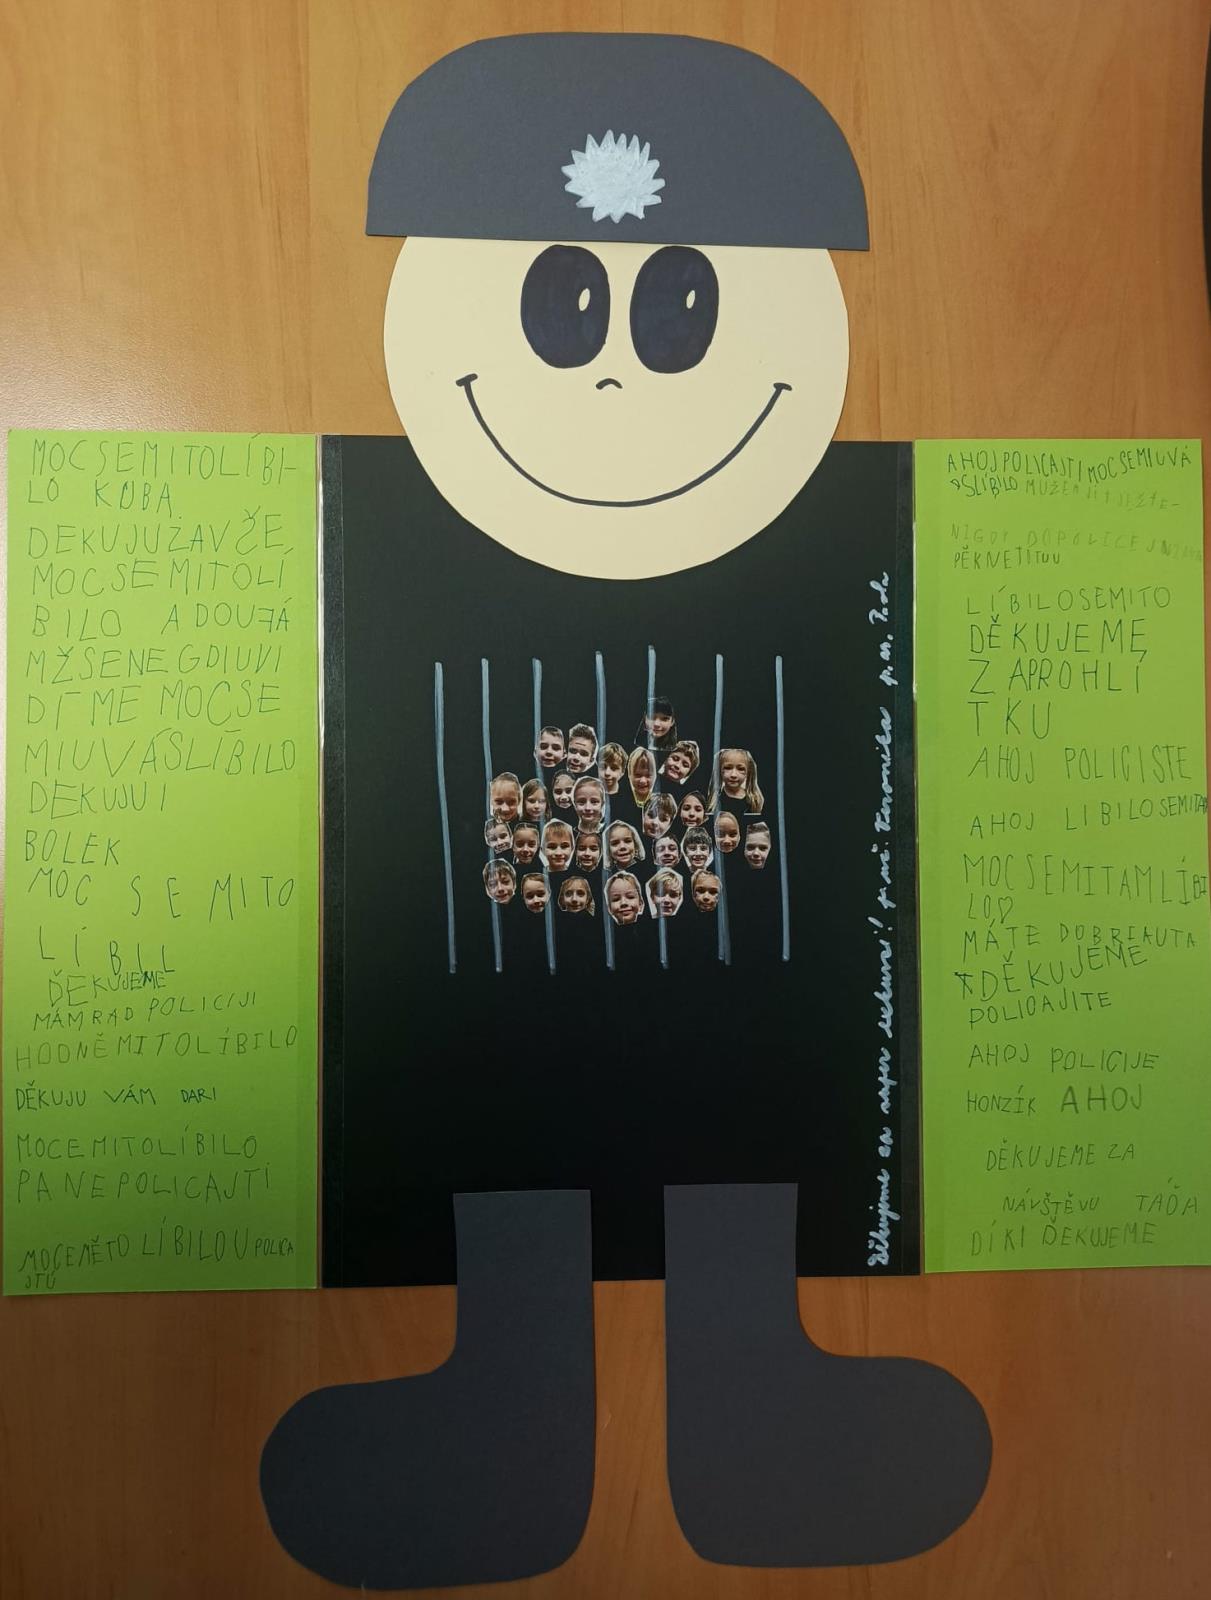 MOCSEMITOLÍBI-
LO KUBA
DEKUJUZAVŠE
MOCSEMITOLÍ
BILO ADOUFÁ
MŽSENEGDIUVI
DÍME MOCSE
MIUVÁSLÍBILO
DEKUJUI
BOLEK
MOC SE MITO
LÍBIL
ĎEKUJEME
MÁMRAD POLICIJI
HODNĚMITOLÍBILO
DĚKUJU VÁM DARI
MOCEMITOLÍBILO
PANEPOLICAJTI
MOCEMĚTO LÍBILOU POLICA
JTÚ
Děkujeme za super exkurzi! p. uč. Veronika p. as. Pavla
AHOJPOLICAJTIMOCSEMIUVÁ
SLÍBILO MUŽEM JÍT JEŠTE-
NIGDY DOPOLICE
PĚKNETITUU
LÍBILOSEMITO
DĚKUJEME
ZAPROHLÍ
TKU
AHOJ POLICISTE
AHOJ LIBILOSEMITAM
MOCSEMITAMLÍBI
LO♡
MÁTE DOBREAUTA
DĚKUJEME
POLICAJITE
AHOJ POLICIJE
HONZÍK AHOJ
DĚKUJEME ZA
NÁVŠTĚVU TÁĎA
DÍKI ĎEKUJEME